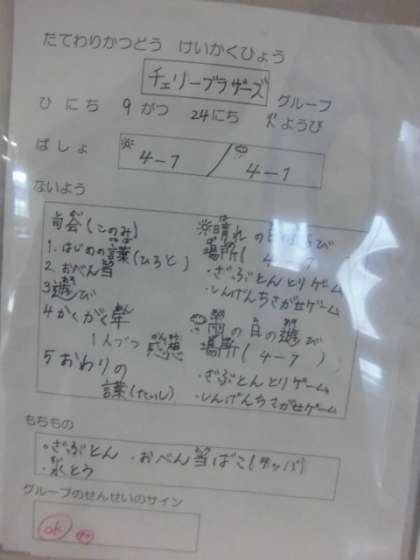 たてわりかつどう けいかくひょう
チェリーブラザーズ グループ
ひにち 9がつ 24にち 火ようび
ばしょ 4-7 / 4-7
ないよう
司会(このみ)
1.はじめの言葉(ひろと)
2.おべん当
3.遊び
4かくがく年
1人づつ感想
5おわりの
言葉(たいし)
晴れの日の遊び
場所(4-7)
・ざぶとんとりゲーム
・しんげんちさがせゲーム
雨の日の遊び
場所(4-7)
・ざぶとんとりゲーム
・しんげんちさがせゲーム
もちもの
・ざぶとん ・おべん当ばこ(タッパ)
・水とう
グループのせんせいのサイン
ok